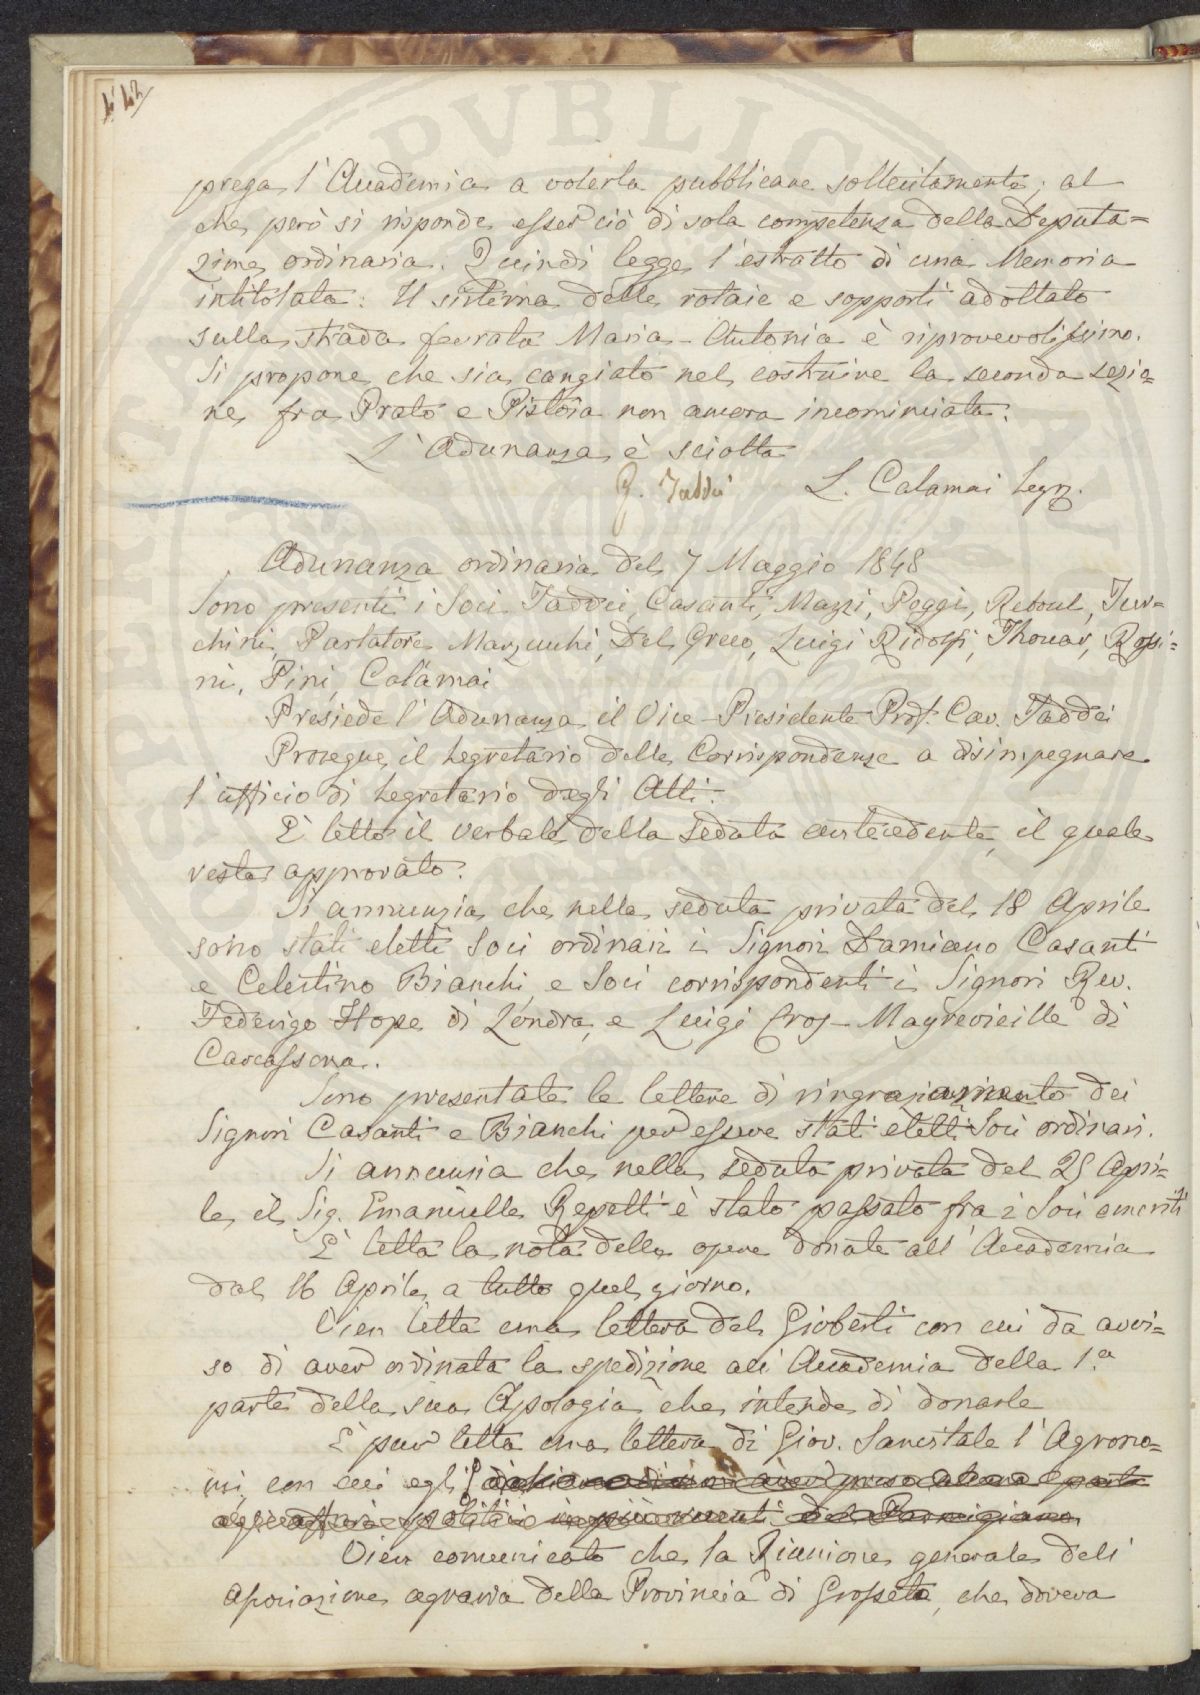 142
prega l'Accademia a volerla pubblicare sollecitamente; al
che però si risponde esser ciò di sola competenza della Deputa=
zione ordinaria. Quindi legge l'estratto di una Memoria
intitolata: Il sistema delle rotaie e sopporti adottato
sulla strada ferrata Maria-Antonia è riprovevolissimo.
Si propone che sia cangiato nel costruire la seconda sezio=
ne fra Prato e Pistoia non ancora incominciata.
L'Adunanza è sciolta
G. Taddei L. Calamai Segr.
Adunanza ordinaria del 7 Maggio 1848
Sono presenti i Soci Taddei, Casanti, Mazzi, Poggi, Reboul, Tur=
chini, Parlatore, Marzucchi, Del Greco, Luigi Ridolfi, Thouar, Rossi=
ni, Pini, Calamai
Presiede l'Adunanza il Vice-Presidente Prof. Cav. Taddei
Prosegue il Segretario delle Corrispondenze a disimpegnare
l'ufficio di Segretario degli Atti.
È letto il verbale della Seduta antecedente, il quale
resta approvato.
Si annunzia che nella seduta privata del 18 Aprile
sono stati eletti Soci ordinari i Signori Damiano Casanti
e Celestino Bianchi, e Soci corrispondenti i Signori Rev.
Federigo Hope di Londra, e Luigi Cros-Mayrevieille di
Carcassona.
Sono presentate le lettere di ringraziamento dei
Signori Casanti e Bianchi per essere stati eletti Soci ordinari.
Si annunzia che nella seduta privata del 25 Apri=
le, il Sig. Emanuelle Repetti è stato passato fra i Soci emeriti
È letta la nota delle opere donate all'Accademia
dal 16 Aprile a tutto quel giorno.
Vien letta una lettera del Gioberti con cui dà avvi=
so di aver ordinata la spedizione all'Accademia della 1.a
parte della sua Apologia che intende di donarle
È pur letta una lettera di Giov. Sanestale l'Agrono=
mi, con cui egli dichiara di non aver preso alcuna parte
agli affari politici del Parmigiano
Vien comunicato che la Riunione generale dell'
associazione agraria della Provincia di Grosseto, che doveva